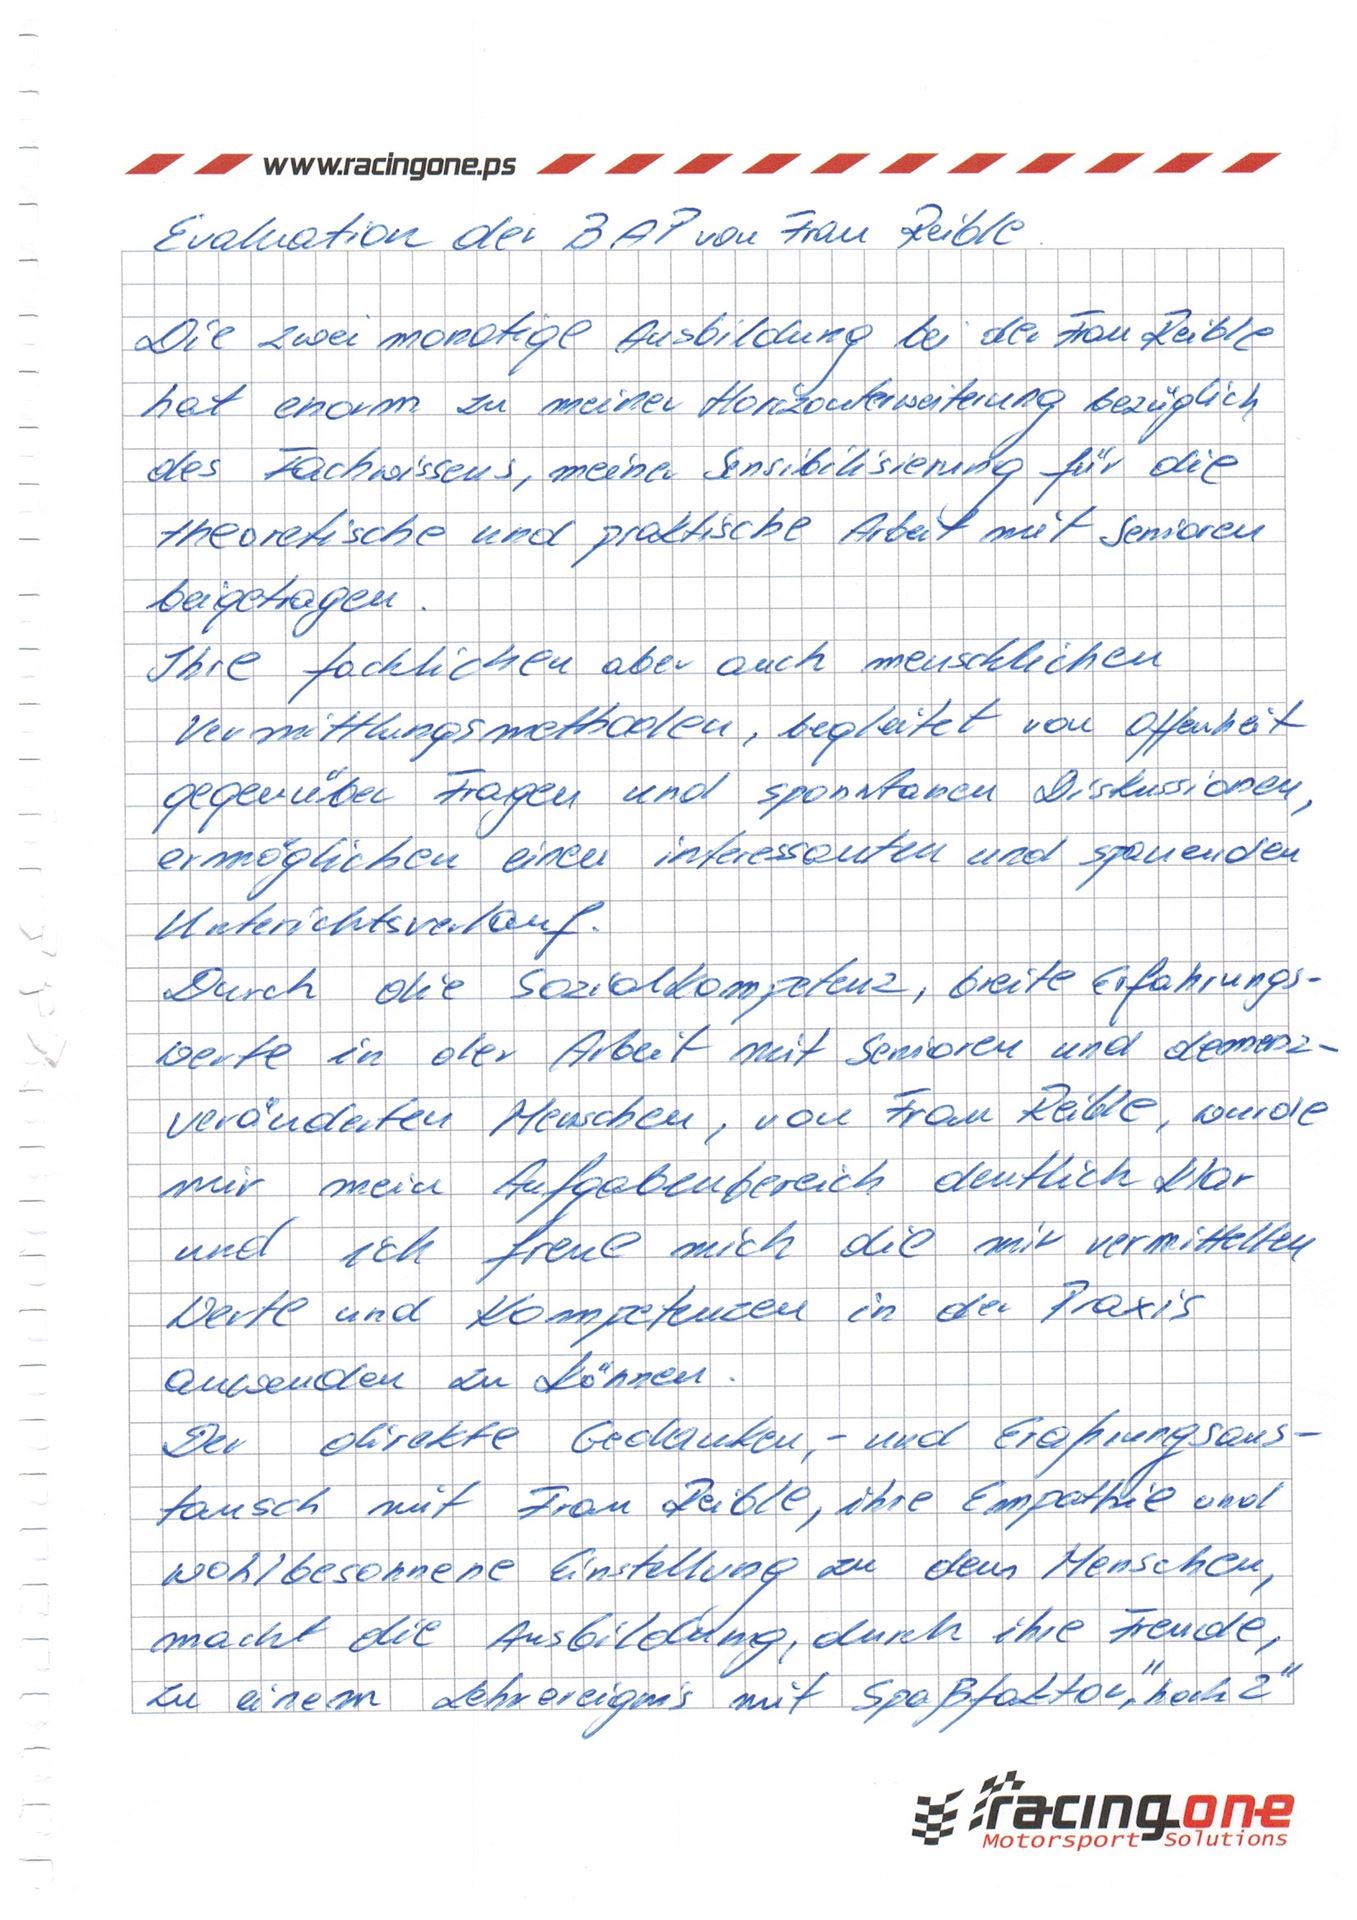 www.racingone.ps
Evaluation der BAP von Frau Reible
Die zwei monatige Ausbildung bei der Frau Reible
hat enorm zu meiner Horizonterweiterung bezüglich
des Fachwissens, meiner Sensibilisierung für die
theoretische und praktische Arbeit mit Senioren
beigetragen.
Ihre fachlichen aber auch menschlichen
Vermittlungsmethoden, begleitet von Offenheit
gegenüber Fragen und sponntanen Diskussionen,
ermöglichen einen interessanten und spanenden
Unterichtsverlauf.
Durch die Sozialkompetenz, breite Erfahrungs-
werte in der Arbeit mit Senioren und demenz-
veränderten Menschen, von Frau Reible, wurde
mir mein Aufgabenbereich deutlich klar
und ich freue mich die mir vermittelten
Werte und Kompetenzen in der Praxis
anwenden zu können.
Der direkte Gedanken,- und Erfahrungsaus-
tausch mit Frau Reible, ihre Empathie und
wohlbesonnene Einstellung zu dem Menschen,
macht die Ausbildung, durch ihre Freude,
zu einem Lehrereignis mit Spaßfaktor "hoch 2"
racing one
Motorsport Solutions